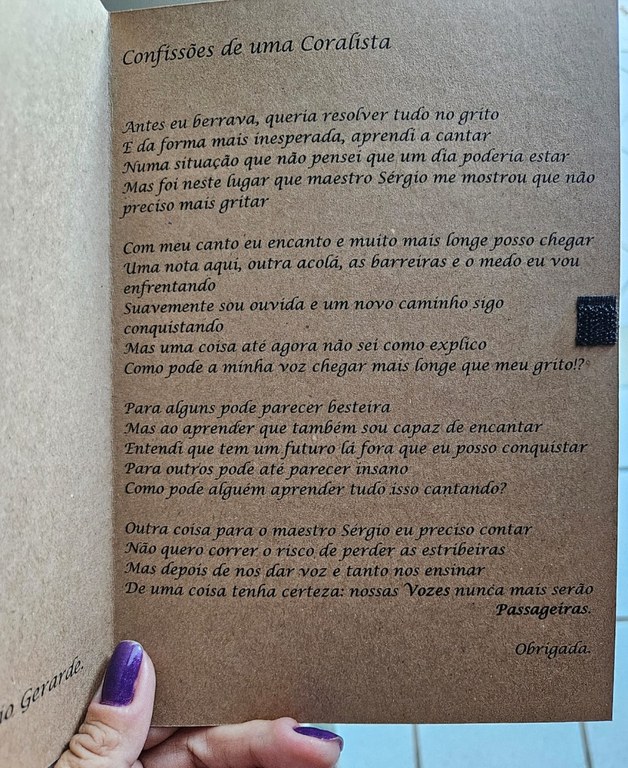 Confissões de uma Coralista
Antes eu berrava, queria resolver tudo no grito
E da forma mais inesperada, aprendi a cantar
Numa situação que não pensei que um dia poderia estar
Mas foi neste lugar que maestro Sérgio me mostrou que não
preciso mais gritar
Com meu canto eu encanto e muito mais longe posso chegar
Uma nota aqui, outra acolá, as barreiras e o medo eu vou
enfrentando
Suavemente sou ouvida e um novo caminho sigo
conquistando
Mas uma coisa até agora não sei como explico
Como pode a minha voz chegar mais longe que meu grito!?
Para alguns pode parecer besteira
Mas ao aprender que também sou capaz de encantar
Entendi que tem um futuro lá fora que eu posso conquistar
Para outros pode até parecer insano
Como pode alguém aprender tudo isso cantando?
Outra coisa para o maestro Sérgio eu preciso contar
Não quero correr o risco de perder as estribeiras
Mas depois de nos dar voz e tanto nos ensinar
De uma coisa tenha certeza: nossas Vozes nunca mais serão
Passageiras.
Obrigada.
Gerarde.